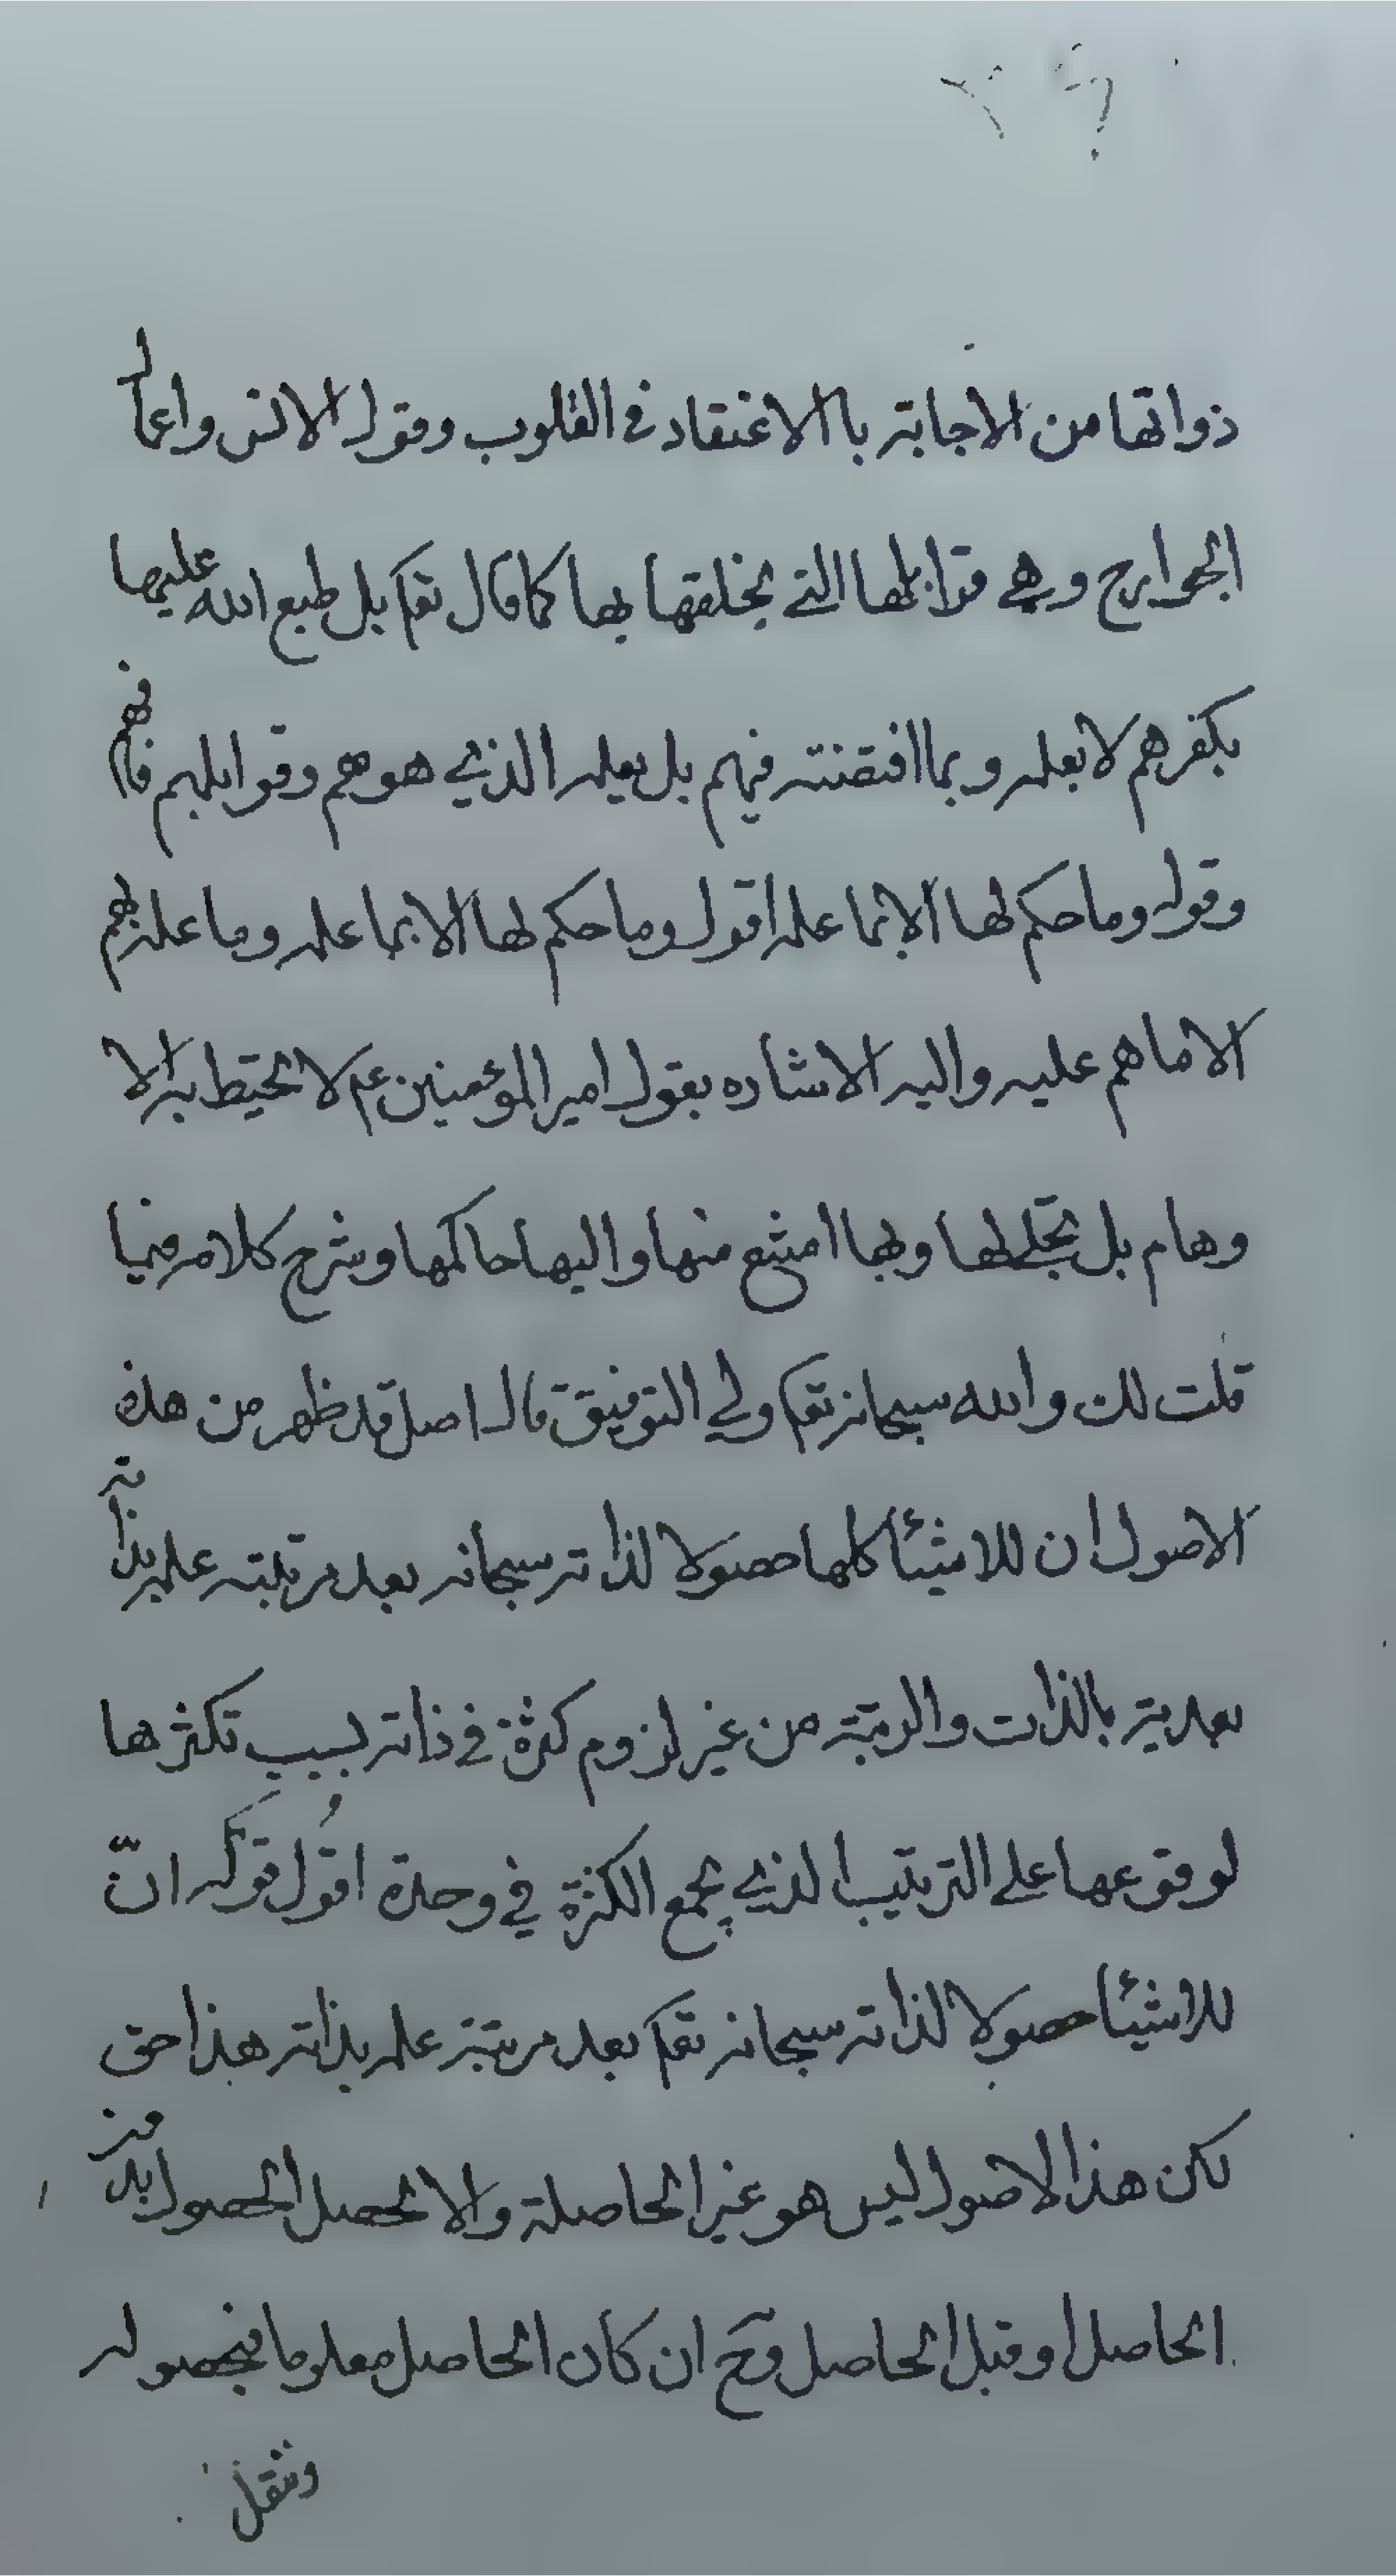 ذواتها من الاجابة باالاعتقاد في القلوب وقول الالسن واعمال
الجوارح وهي قوابلها التي يخلقها بها كما قال تعم بل طبع الله عليها
بكفرهم لا بعلمه وبما اقتضته فيهم بل بعلمه الذي هو هم وقوابلهم فافهم
وقوله وما حكم لها الا بما علمه اقول وما حكم لها الا بما علمه وما علمه بهم
الا ما هم عليه واليه الاشاره بقول امير المؤمنين عم لا تحيط به الا
وهام بل تجلى لها وبها امتنع منها واليها حاكمها وشرح كلامه فيما
قلت لك والله سبحانه تعم ولي التوفيق قال اصل قد ظهر من هذه
الاصول ان للاشيئا كلها حصولا لذاته سبحانه بعد مرتبته علمه بذاته
بعدية بالذات والرتبة من غير لزوم كثرة في ذاته بسبب تكثرها
لوقوعها على الترتيب الذي يجمع الكثرة في وحدة اقول قوله انّ
للاشيئا حصولا لذاته سبحانه تعم بعد مرتبة علمه بذاته هذا حق
لكن هذا الاصول ليس هو غير الحاصلة والا لحصل الحصول بدون
الحاصل او قبل الحاصل وح ان كان الحاصل معلوما فبحصوله
وننقل